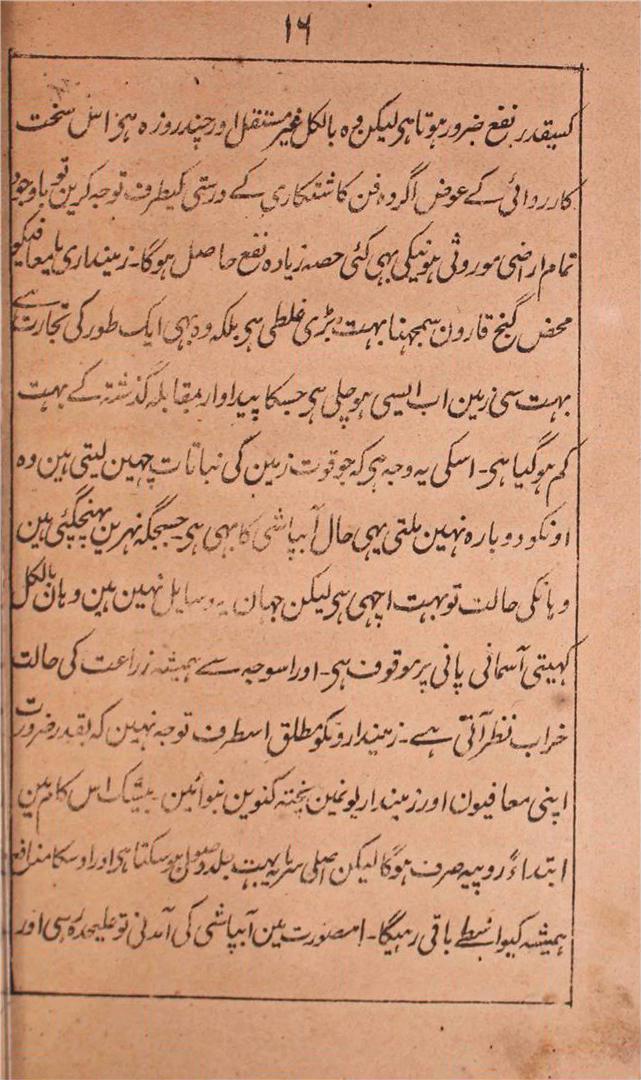 ۱۶
کسیقدر نفع ضرور ہوتا ہی لیکن وہ بالکل غیر مستقل اور چند روزہ ہی اس سخت
کارروائی کے عوض اگر وہ فن کاشتکاری کے درستی کیطرف توجہ کرین تو باوجود
تمام اراضی موروثی ہونیکی بہی کئی حصہ زیادہ نفع حاصل ہوگا۔ زمینداری یا معافیکو
محض گنج قارون سمجہنا بہت بڑی غلطی ہی بلکہ وہ بہی ایک طور کی تجارت ہے
بہت سی زمین اب ایسی ہو چلی ہی جسکا پیداوار بمقابلہ گذشتہ کے بہت
کم ہوگیا ہی۔ اسکی یہ وجہ ہی کہ جو قوت زمین کی نباتات چہین لیتی ہین وہ
اونکو دوبارہ نہین ملتی یہی حال آبپاشی کا بہی ہی۔ جسجگہ نہرین پہنچگئی ہین
وہانکی حالت تو بہت اچہی ہی لیکن جہان یہ وسایل نہین ہین وہان بالکل
کہیتی آسمانی پانی پر موقوف ہی۔ اور اسوجہ سے ہمیشہ زراعت کی حالت
خراب نظر آتی ہے۔ زمیندارونکو مطلق اسطرف توجہ نہین کہ بقدر ضرورت
اپنی معافیون اور زمینداریونمین پختہ کنوین بنوائین۔ بیشک اس کام مین
ابتداءً روپیہ صرف ہوگا لیکن اصلی سرمایہ بہت جلد وصول ہوسکتا ہی اور اوسکا منافع
ہمیشہ کیواسطے باقی رہیگا۔ اسصورت مین آبپاشی کی آمدنی تو علیحدہ رہی اور